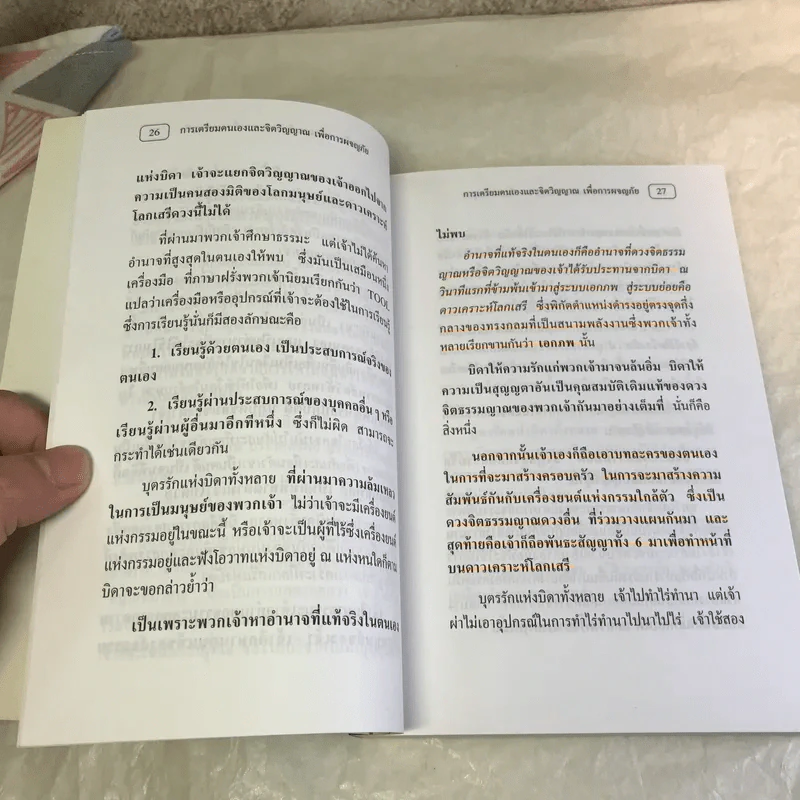 26 การเตรียมตนเองและจิตวิญญาณ เพื่อการผจญภัย
แห่งบิดา เจ้าจะแยกจิตวิญญาณของเจ้าออกไปจาก
ความเป็นคนสองมิติของโลกมนุษย์และดาวเคราะห์
โลกเสรีดวงนี้ไม่ได้
ที่ผ่านมาพวกเจ้าศึกษาธรรมะ แต่เจ้าไม่ได้ค้นหา
อำนาจที่สูงสุดในตนเองให้พบ ซึ่งมันเป็นเสมือนหนึ่ง
เครื่องมือ ที่ภาษาฝรั่งพวกเจ้านิยมเรียกกันว่า TOOL
แปลว่าเครื่องมือหรืออุปกรณ์ที่เจ้าจะต้องใช้ในการเรียนรู้
ซึ่งการเรียนรู้นั่นก็มีสองลักษณะคือ
1. เรียนรู้ด้วยตนเอง เป็นประสบการณ์จริงของ
ตนเอง
2. เรียนรู้ผ่านประสบการณ์ของบุคคลอื่น ๆ หรือ
เรียนรู้ผ่านผู้อื่นมาอีกทีหนึ่ง ซึ่งก็ไม่ผิด สามารถจะ
กระทำได้เช่นเดียวกัน
บุตรรักแห่งบิดาทั้งหลาย ที่ผ่านมาความล้มเหลว
ในการเป็นมนุษย์ของพวกเจ้า ไม่ว่าเจ้าจะมีเครื่องยนต์
แห่งกรรมอยู่ในขณะนี้ หรือเจ้าจะเป็นผู้ที่ไร้ซึ่งเครื่องยนต์
แห่งกรรมอยู่และฟังโอวาทแห่งบิดาอยู่ ณ แห่งหนใดก็ตาม
บิดาจะขอกล่าวย้ำว่า
เป็นเพราะพวกเจ้าหาอำนาจที่แท้จริงในตนเอง
การเตรียมตนเองและจิตวิญญาณ เพื่อการผจญภัย 27
ไม่พบ
อำนาจที่แท้จริงในตนเองก็คืออำนาจที่ดวงจิตธรรม
ญาณหรือจิตวิญญาณของเจ้าได้รับประทานจากบิดา ณ
วินาทีแรกที่ข้ามพ้นเข้ามาสู่ระบบเอกภพ สู่ระบบย่อยคือ
ดาวเคราะห์โลกเสรี ซึ่งพิกัดตำแหน่งดำรงอยู่ตรงจุดกึ่ง
กลางของทรงกลมที่เป็นสนามพลังงานซึ่งพวกเจ้าทั้ง
หลายเรียกขานกันว่า เอกภพ นั้น
บิดาให้ความรักแก่พวกเจ้ามาจนล้นอิ่ม บิดาให้
ความเป็นสุญญตาอันเป็นคุณสมบัติเดิมแท้ของดวง
จิตธรรมญาณของพวกเจ้ากันมาอย่างเต็มที่ นั่นก็คือ
สิ่งหนึ่ง
นอกจากนั้นเจ้าเองก็ถือเอาบทละครของตนเอง
ในการที่จะมาสร้างครอบครัว ในการจะมาสร้างความ
สัมพันธ์กันกับเครื่องยนต์แห่งกรรมใกล้ตัว ซึ่งเป็น
ดวงจิตธรรมญาณดวงอื่น ที่ร่วมวางแผนกันมา และ
สุดท้ายคือเจ้าก็ถือพันธะสัญญาทั้ง 6 มาเพื่อทำหน้าที่
บนดาวเคราะห์โลกเสรี
บุตรรักแห่งบิดาทั้งหลาย เจ้าไปทำไร่ทำนา แต่เจ้า
ผ่าไม่เอาอุปกรณ์ในการทำไร่ทำนาไปนาไปไร่ เจ้าใช้สอง